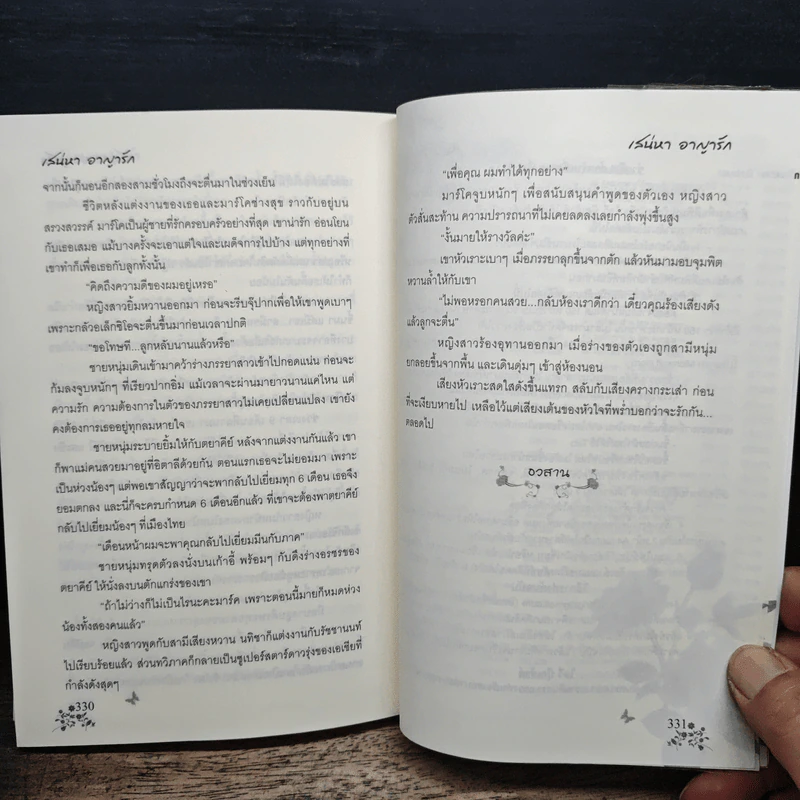 เสน่หา อาญารัก
จากนั้นก็นอนอีกสองสามชั่วโมงถึงจะตื่นมาในช่วงเย็น
ชีวิตหลังแต่งงานของเธอและมาร์โคช่างสุข ราวกับอยู่บน
สรวงสวรรค์ มาร์โคเป็นผู้ชายที่รักครอบครัวอย่างที่สุด เขาน่ารัก อ่อนโยน
กับเธอเสมอ แม้บางครั้งจะเอาแต่ใจและเผด็จการไปบ้าง แต่ทุกอย่างที่
เขาทำก็เพื่อเธอกับลูกทั้งนั้น
“คิดถึงความดีของผมอยู่เหรอ”
หญิงสาวยิ้มหวานออกมา ก่อนจะรีบจุ๊ปากเพื่อให้เขาพูดเบาๆ
เพราะกลัวอเล็กซิโอจะตื่นขึ้นมาก่อนเวลาปกติ
“ขอโทษที...ลูกหลับนานแล้วหรือ”
ชายหนุ่มเดินเข้ามาคว้าร่างภรรยาสาวเข้าไปกอดแน่น ก่อนจะ
ก้มลงจูบหนักๆ ที่เรียวปากอิ่ม แม้เวลาจะผ่านมายาวนานแค่ไหน แต่
ความรัก ความต้องการในตัวของภรรยาสาวไม่เคยเปลี่ยนแปลง เขายัง
คงต้องการเธออยู่ทุกลมหายใจ
ชายหนุ่มระบายยิ้มให้กับตยาคีย์ หลังจากแต่งงานกันแล้ว เขา
ก็พาแม่คนสวยมาอยู่ที่อิตาลีด้วยกัน ตอนแรกเธอจะไม่ยอมมา เพราะ
เป็นห่วงน้องๆ แต่พอเขาสัญญาว่าจะพากลับไปเยี่ยมทุก 6 เดือน เธอจึง
ยอมตกลง และนี่ก็จะครบกำหนด 6 เดือนอีกแล้ว ที่เขาจะต้องพาตยาคีย์
กลับไปเยี่ยมน้องๆ ที่เมืองไทย
“เดือนหน้าผมจะพาคุณกลับไปเยี่ยมมีนกับภาค”
ชายหนุ่มทรุดตัวลงนั่งบนเก้าอี้ พร้อมๆ กับดึงร่างอรชรของ
ตยาคีย์ ให้นั่งลงบนตักแกร่งของเขา
“ถ้าไม่ว่างก็ไม่เป็นไรนะคะมาร์ค เพราะตอนนี้มายก็หมดห่วง
น้องทั้งสองคนแล้ว”
หญิงสาวพูดกับสามีเสียงหวาน นทิชาก็แต่งงานกับรัชชานนท์
ไปเรียบร้อยแล้ว ส่วนทวิภาคก็กลายเป็นซูเปอร์สตาร์ดาวรุ่งของเอเชียที่
กำลังดังสุดๆ
330
เสน่หา อาญารัก
“เพื่อคุณ ผมทำได้ทุกอย่าง”
มาร์โคจูบหนักๆ เพื่อสนับสนุนคำพูดของตัวเอง หญิงสาว
ตัวสั่นสะท้าน ความปรารถนาที่ไม่เคยลดลงเลยกำลังพุ่งขึ้นสูง
“งั้นมายให้รางวัลค่ะ”
เขาหัวเราะเบาๆ เมื่อภรรยาลุกขึ้นจากตัก แล้วหันมามอบจุมพิต
หวานล้ำให้กับเขา
“ไม่พอหรอกคนสวย...กลับห้องเราดีกว่า เดี๋ยวคุณร้องเสียงดัง
แล้วลูกจะตื่น”
หญิงสาวร้องอุทานออกมา เมื่อร่างของตัวเองถูกสามีหนุ่ม
ยกลอยขึ้นจากพื้น และเดินดุ่มๆ เข้าสู่ห้องนอน
เสียงหัวเราะสดใสดังขึ้นแทรก สลับกับเสียงครางกระเส่า ก่อน
ที่จะเงียบหายไป เหลือไว้แต่เสียงเต้นของหัวใจที่พร่ำบอกว่าจะรักกัน...
ตลอดไป
อวสาน
331